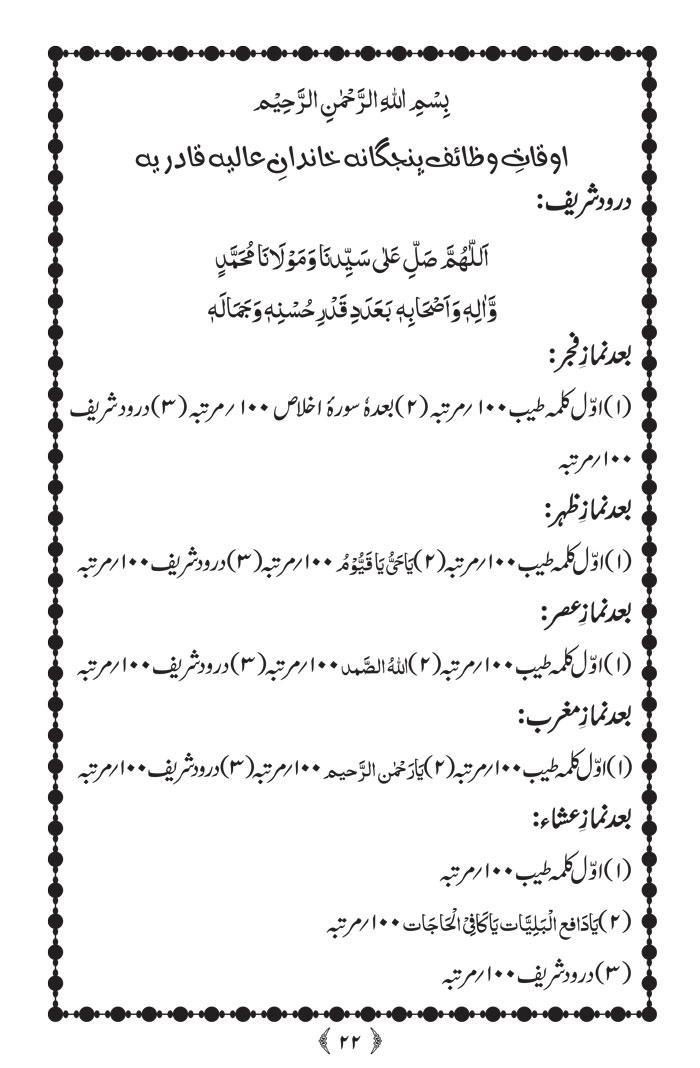 بِسْمِ اللهِ الرَّحْمٰنِ الرَّحِيْم
اوقاتِ وظائف پنجگانہ خاندانِ عالیہ قادریہ
درود شریف:
اَللّٰهُمَّ صَلِّ عَلٰى سَيِّدِنَا وَمَوْلَانَا مُحَمَّدٍ
وَّاٰلِهٖ وَاَصْحَابِهٖ بَعَدَدِ قَدْرِ حُسْنِهٖ وَجَمَالَهٖ
بعد نمازِ فجر:
(۱) اوّل کلمہ طیب ۱۰۰؍مرتبہ (۲) بعدہٗ سورۂ اخلاص ۱۰۰؍مرتبہ (۳) درود شریف
۱۰۰؍مرتبہ
بعد نمازِ ظہر:
(۱) اوّل کلمہ طیب ۱۰۰؍مرتبہ (۲) يَاحَيُّ يَا قَيُّوْمُ ۱۰۰؍مرتبہ (۳) درود شریف ۱۰۰؍مرتبہ
بعد نمازِ عصر:
(۱) اوّل کلمہ طیب ۱۰۰؍مرتبہ (۲) اَللهُ الصَّمد ۱۰۰؍مرتبہ (۳) درود شریف ۱۰۰؍مرتبہ
بعد نمازِ مغرب:
(۱) اوّل کلمہ طیب ۱۰۰؍مرتبہ (۲) يَارَحْمٰن الرَّحيم ۱۰۰؍مرتبہ (۳) درود شریف ۱۰۰؍مرتبہ
بعد نمازِ عشاء:
(۱) اوّل کلمہ طیب ۱۰۰؍مرتبہ
(۲) يَادَافع الْبَلِيَّات يَاكَافِيْ الْحَاجَات ۱۰۰؍مرتبہ
(۳) درود شریف ۱۰۰؍مرتبہ
﴿ ۲۲ ﴾